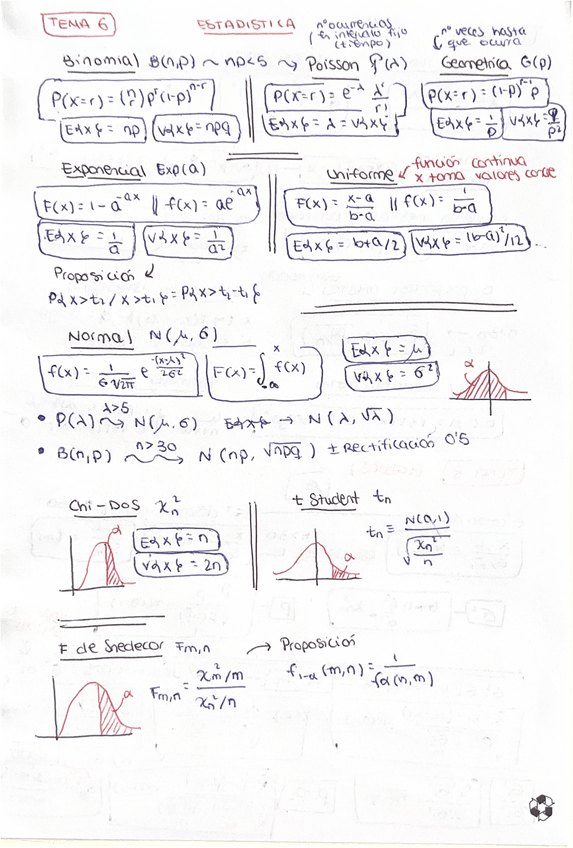 TEMA 6
ESTADISTICA
nº ocurrencias
(en intervalo fijo
(tiempo)
nº veces hasta
que ocurra
Binomial B(n,p) ~ np<5 ~> Poisson P(λ)
Geometrica G(p)
P(X=r) = (n r) p^r (1-p)^{n-r}
E{X} = np
V{X} = npq
P(X=r) = e^{-λ} λ^r/r!
E{X} = λ = V{X}
P(X=r) = (1-p)^{r-1} p
E{X} = 1/p
V{X} = q/p²
Exponencial Exp(a)
F(x) = 1 - a^{-ax} || f(x) = ae^{-ax}
E{X} = 1/a
V{X} = 1/a²
Uniforme
función continua
x toma valores
F(x) = x-a/b-a || f(x) = 1/b-a
E{X} = b+a/2
V{X} = (b-a)²/12
Proposición
P{X>t₂ / X>t₁} = P{X>t₂-t₁}
Normal N(μ,σ)
f(x) = 1/σ√2π e^{-(x-μ)²/2σ²}
F(x) = ∫_{-∞}^{x} f(x)
E{X} = μ
V{X} = σ²
α
• P(λ) λ>5 ~> N(μ,σ) E{X} → N(λ,√λ)
• B(n,p) n>30 ~> N(np, √npq) ± Rectificación 0'5
Chi-DOS χ_n²
α
E{X} = n
V{X} = 2n
t Student t_n
α
t_n ≡ N(0,1) / √(χ_n²/n)
F de Snedecor F_{m,n}
α
F_{m,n} = χ_m²/m / χ_n²/n
Proposición
f_{1-α}(m,n) = 1/f_α(n,m)